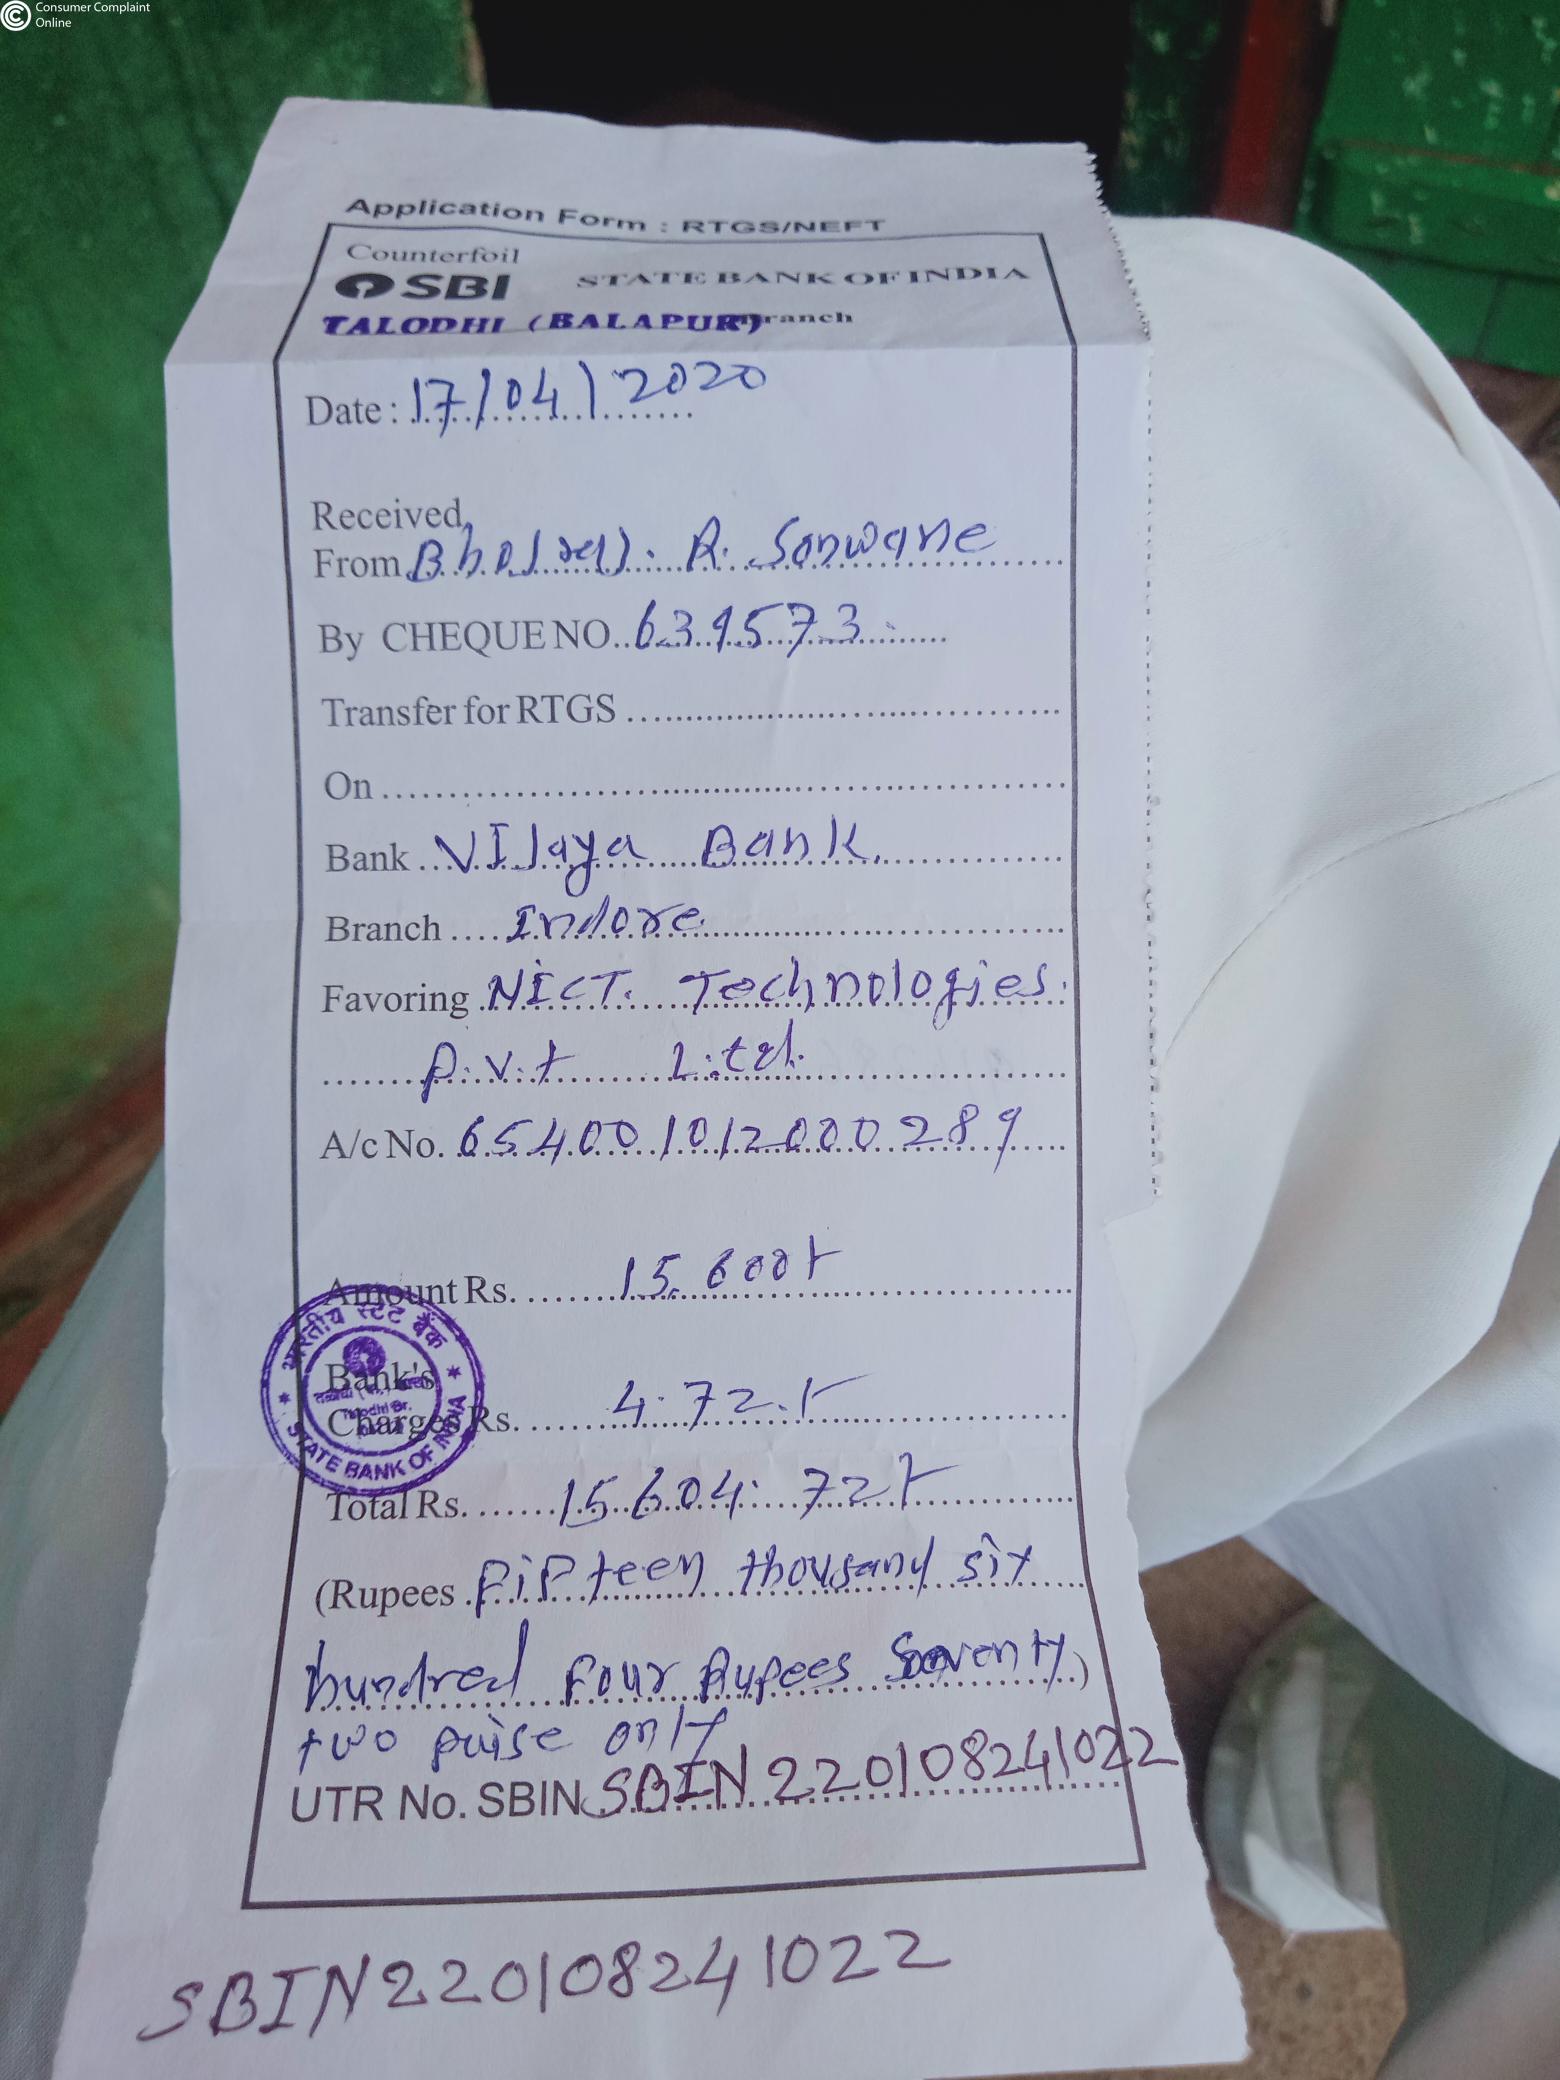 Consumer Complaint
Online
Application Form : RTGS/NEFT
Counterfoil
SBI STATE BANK OF INDIA
TALODHI (BALAPUR) Branch
Date : 17/04/2020
Received
From R. Sonwane
By CHEQUE NO. 639573
Transfer for RTGS
On
Bank VIJaya Bank.
Branch Indore
Favoring NICT. Technologies.
P.V.t L.td.
A/c No. 654001012000289
Amount Rs. 15.600
Bank's
Charges Rs. 4.72
Total Rs. 15604.72
(Rupees Fifteen thousand six
hundred Four Rupees Seventy )
two paise only
UTR No. SBIN SBIN220108241022
भारतीय स्टेट बैंक
Talodhi Br.
STATE BANK OF INDIA
SBIN220108241022